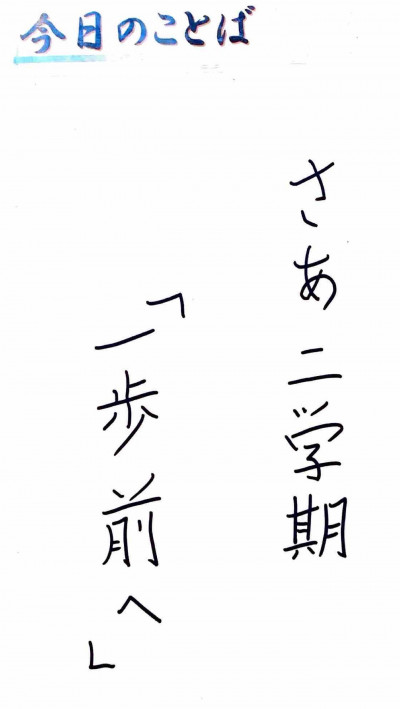 今日のことば
さあ二学期
「一歩前へ」